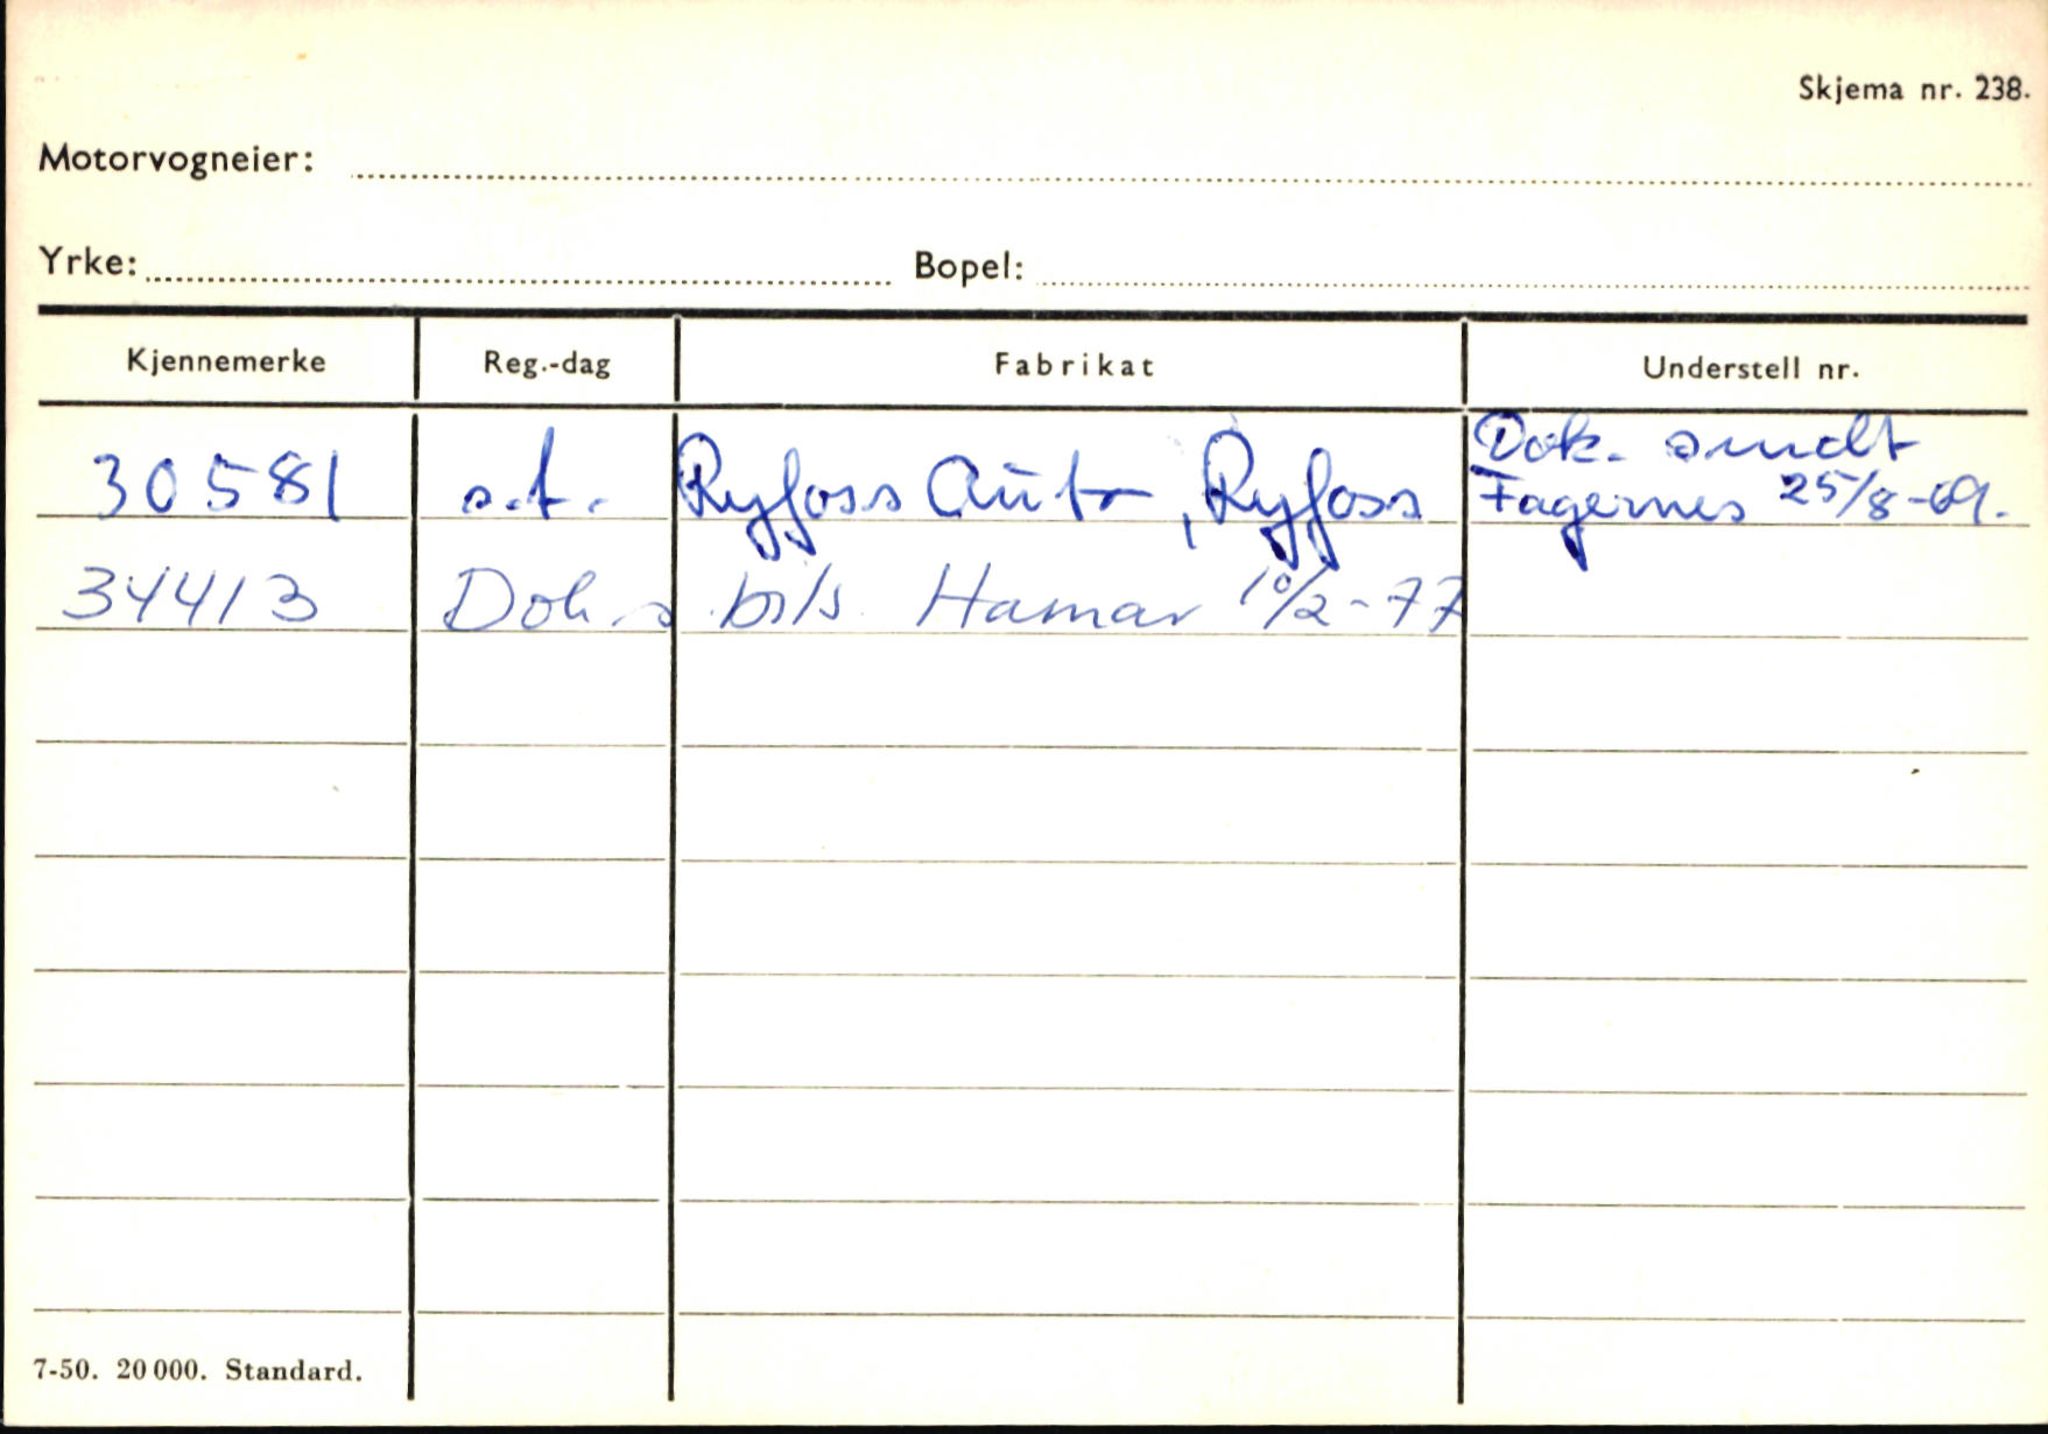 Skjema nr. 238.
Motorvogneier:
Yrke: Bopel:
Kjennemerke Reg.-dag Fabrikat Understell nr.
30581 s.t. Ryfoss Auto, Ryfoss Dok. sendt
Fagernes 25/8-69.
34413 Dok s bils Hamar 10/2-77
7-50. 20 000. Standard.